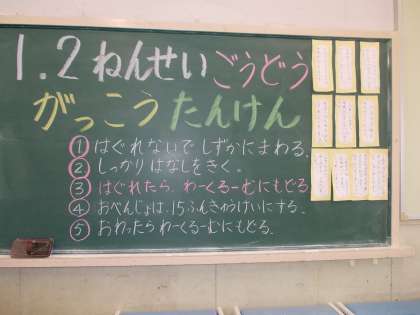 1.2ねんせいごうどう
がっこうたんけん
①はぐれないで しずかにまわる.
②しっかりはなしをきく。
③はぐれたら、わーくるーむにもどる
④おべんじょは、15ふんきゅうけいにする。
⑤おわったらわーくるーむにもどる。